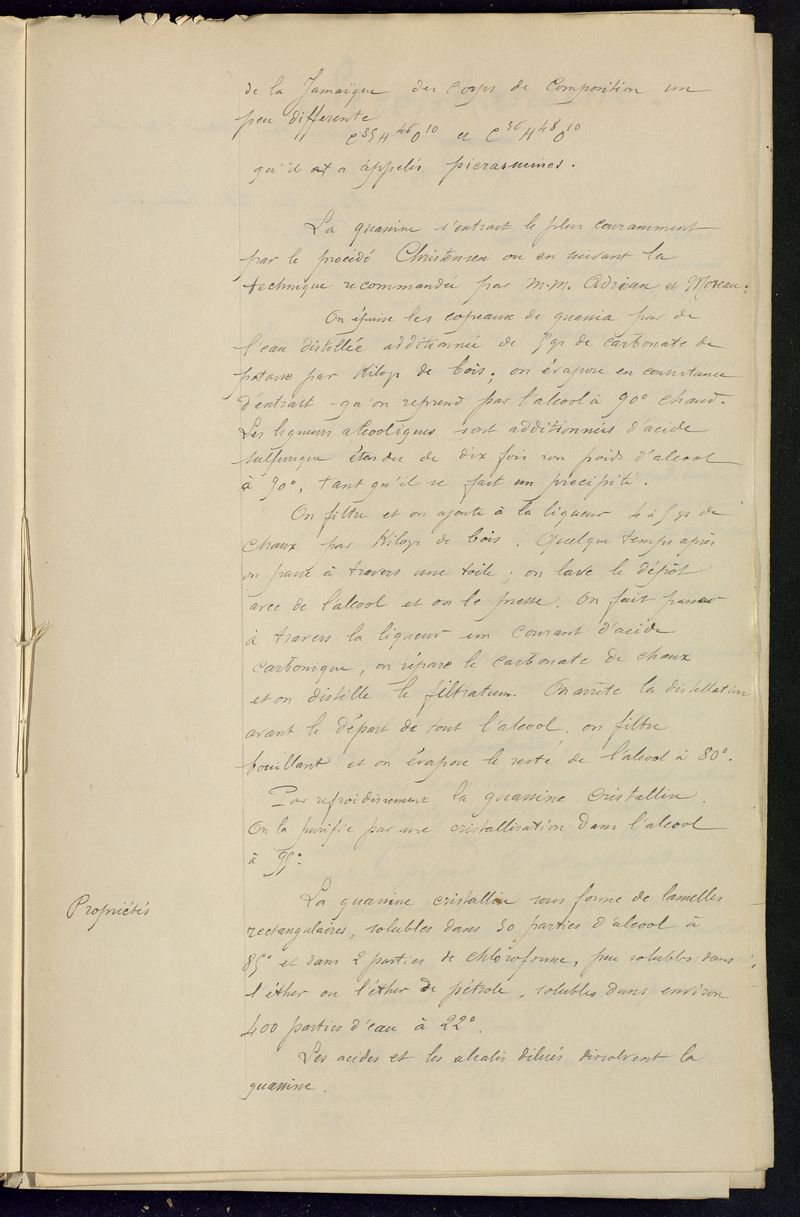 de la Jamaïque des corps de composition un
peu differente
C³⁵H⁴⁶O¹⁰ et C³⁶H⁴⁸O¹⁰
qu'il a appelés picrasmines.
La quassine s'extrait le plus couramment
par le procédé Christensen ou en suivant la
technique recommandée par M.M. Adrian et Moreau:
On épuise les copeaux de quassia par de
l'eau distillée additionnée de 5gr de carbonate de
potasse par Kilogr de bois; on évapore en consistance
d'extrait qu'on reprend par l'alcool à 90° chaud.
Les liqueurs alcooliques sont additionnées d'acide
sulfurique étendu de dix fois son poids d'alcool
à 90°, tant qu'il se fait un précipité.
On filtre et on ajoute à la liqueur 4 à 5 gr de
chaux par Kilogr de bois. Quelque temps après
on passe à travers une toile; on lave le dépôt
avec de l'alcool et on le presse. On fait passer
à travers la liqueur un courant d'acide
carbonique, on sépare le carbonate de chaux
et on distille le filtratum. On arrête la distillation
avant le départ de tout l'alcool, on filtre
bouillant et on évapore le reste de l'alcool à 80°.
Par refroidissement la quassine cristallise.
On la purifie par une cristallisation dans l'alcool
à 95°.
Propriétés
La quassine cristallise sous forme de lamelles
rectangulaires, solubles dans 30 parties d'alcool à
85° et dans 2 parties de chloroforme, peu solubles dans
l'éther ou l'éther de pétrole, solubles dans environ
400 parties d'eau à 22°.
Les acides et les alcalis dilués dissolvent la
quassine.